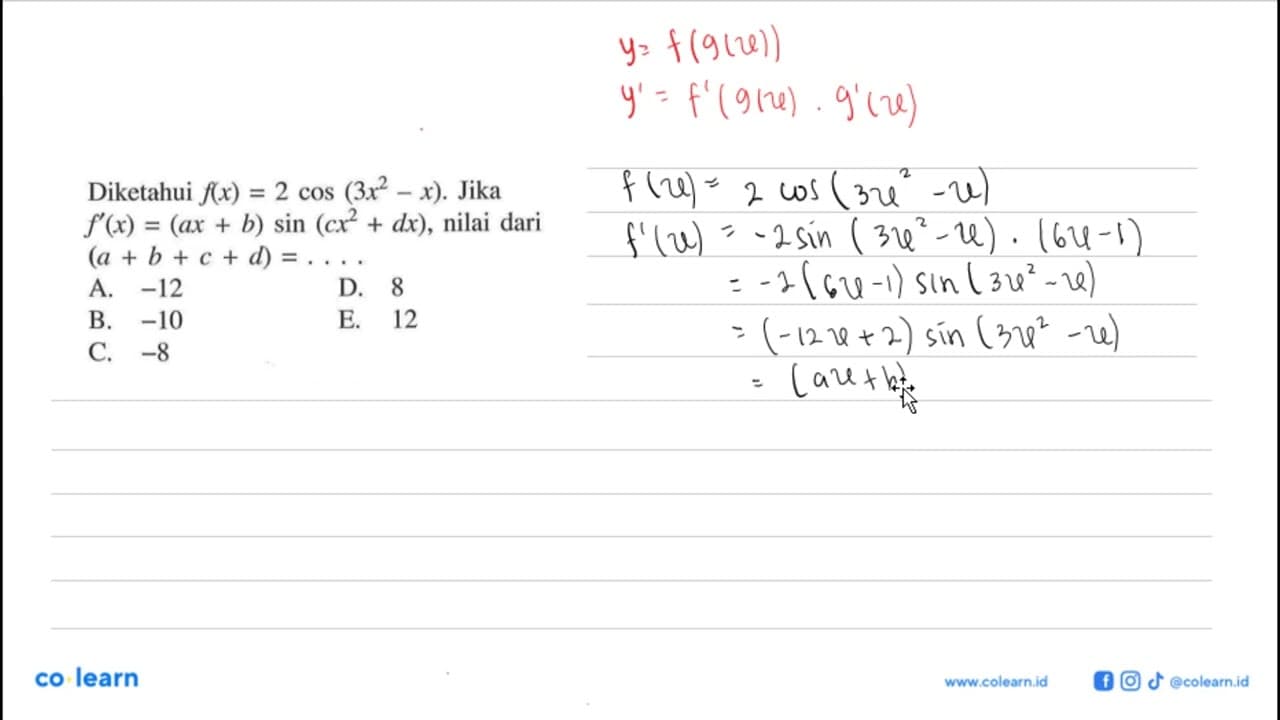 y = f(g(x))
y' = f'(g(x) . g'(x)
Diketahui f(x) = 2 cos (3x² – x). Jika
f'(x) = (ax + b) sin (cx² + dx), nilai dari
(a + b + c + d) = . . . .
A. –12
B. –10
C. –8
D. 8
E. 12
f(x) = 2 cos (3x² - x)
f'(x) = -2 sin (3x² - x) . (6x - 1)
= -2 (6x - 1) sin (3x² - x)
= (-12x + 2) sin (3x² - x)
= (ax + b)
co learn
www.colearn.id
@colearn.id